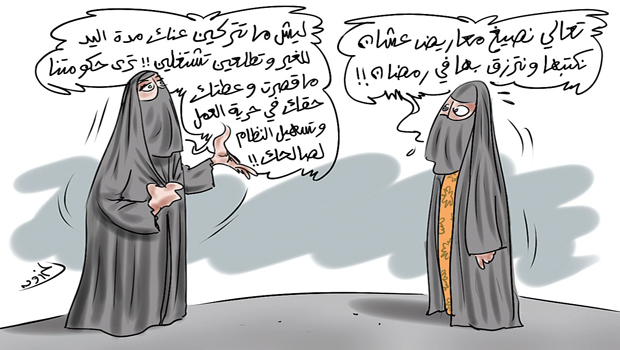 تعالي نصيغ معاريض عشان
نكتبها ونترزق بها في رمضان !!
ليش ما تتركين عنك مدة اليد
للغير وتطلعين تشتغلين !! ترى حكومتنا
ما قصرت وعطتك
حقك في حرية العمل
وتسهيل النظام
لصالحك !!